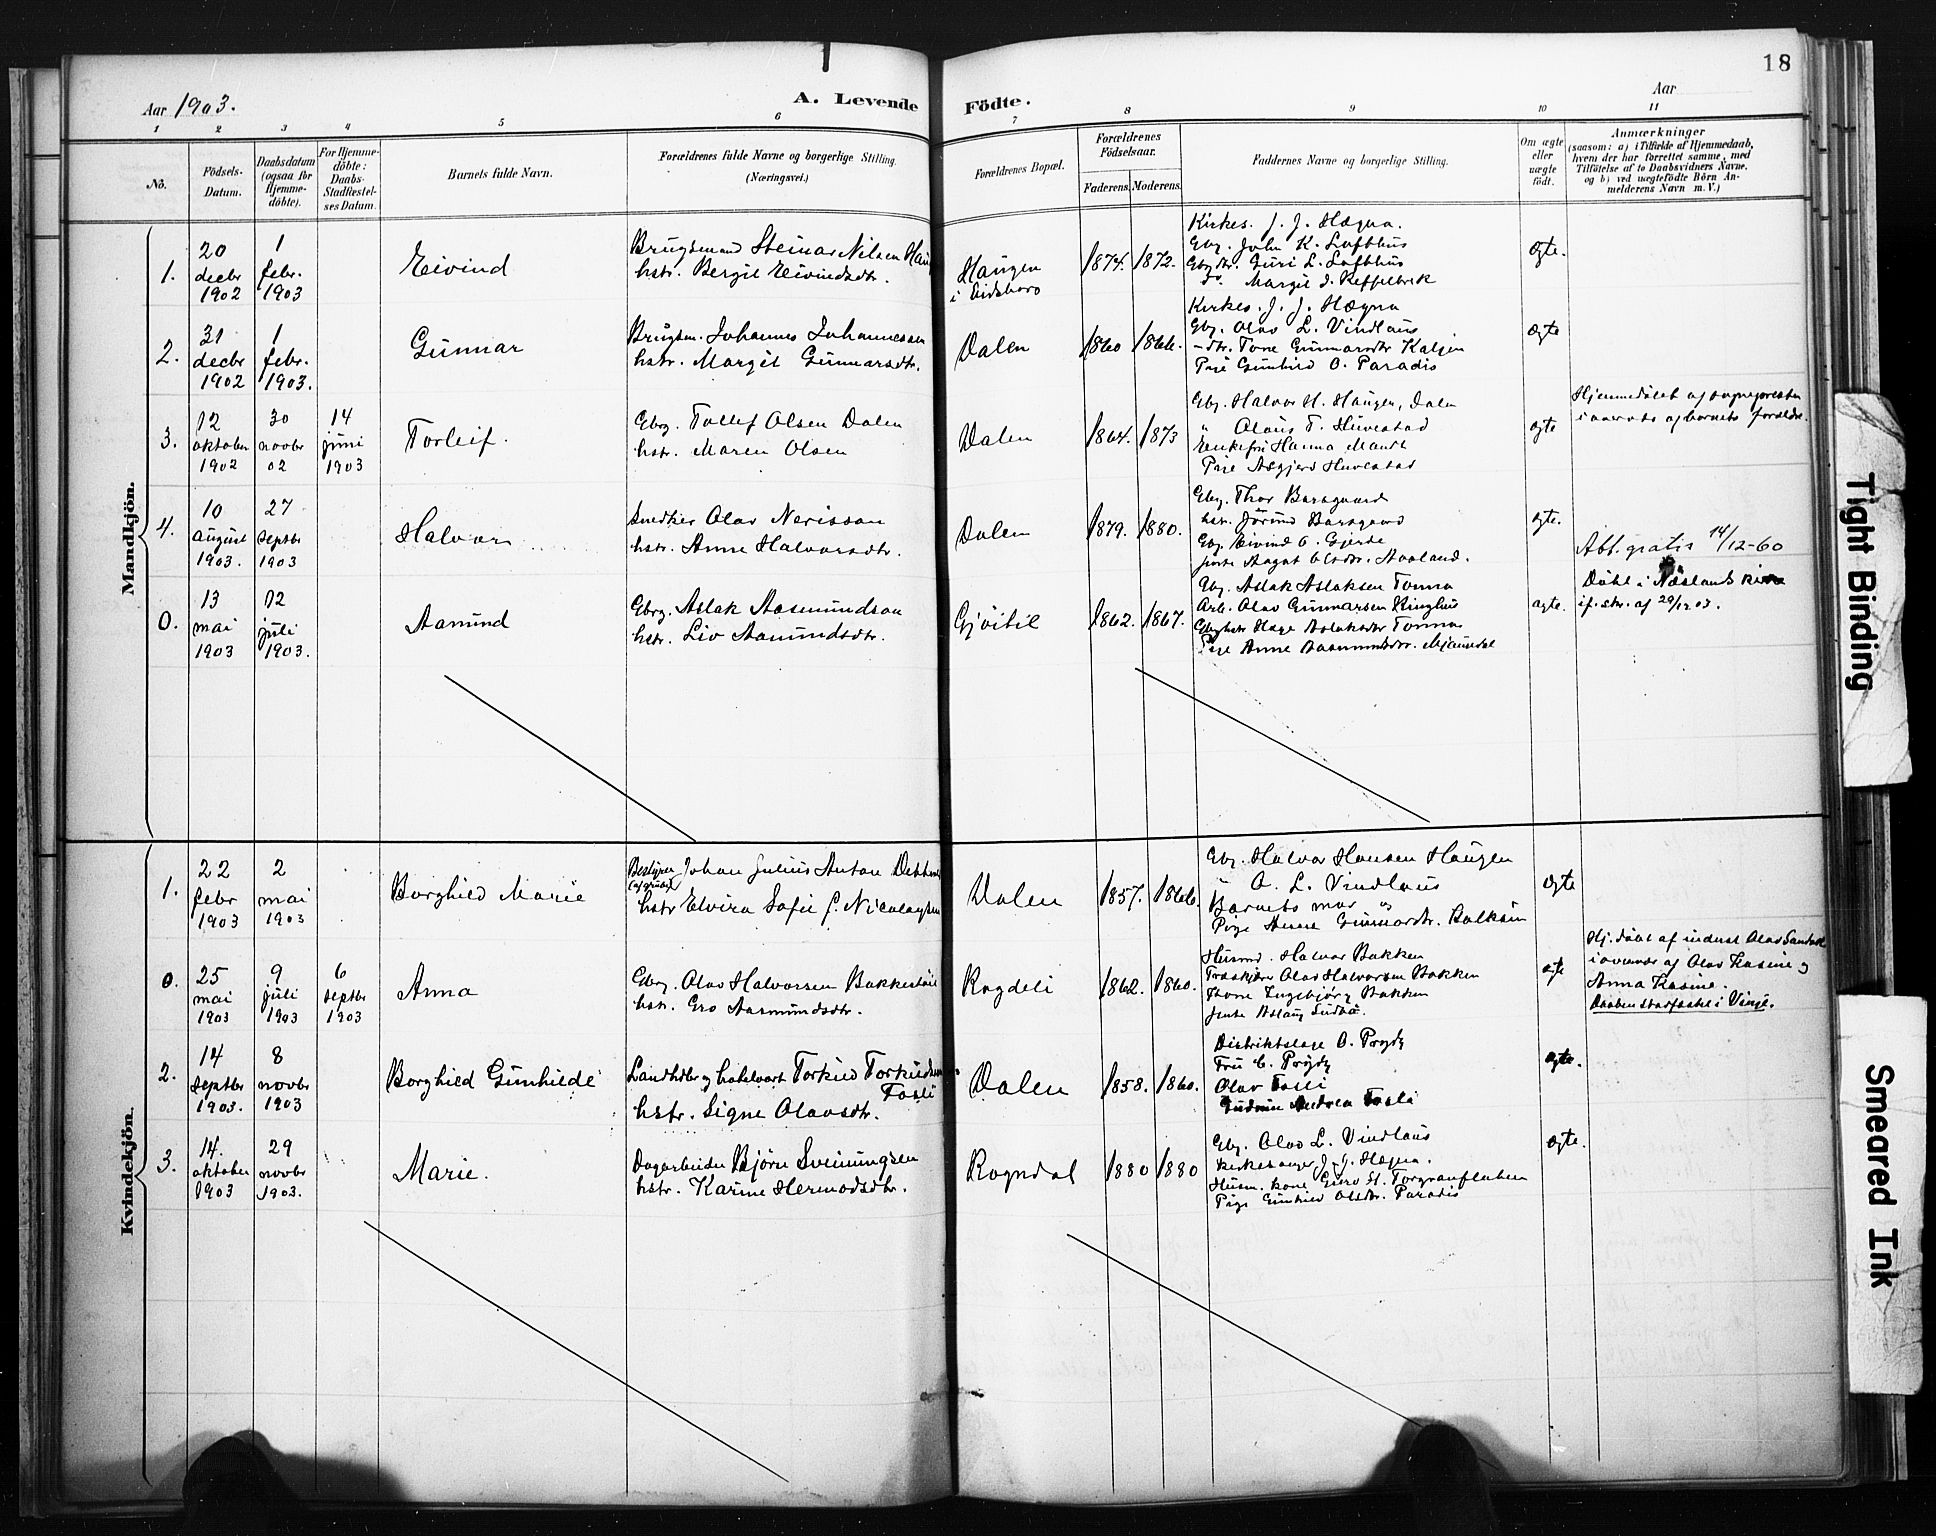 18
Aar 1903.
A. Levende Födte.
Aar
1 2 3 4 5 6 7 8 9 10 11
No.
Födsels-Datum.
Daabsdatum (ogsaa for Hjemmedöbte).
For Hjemmedöbte: Daabs-Stadfæstelses Datum.
Barnets fulde Navn.
Forældrenes fulde Navne og borgerlige Stilling.
(Næringsvei.)
Forældrenes Bopæl.
Forældrenes Födselsaar.
Faderens. Moderens.
Faddernes Navne og borgerlige Stilling.
Om ægte eller uægte födt.
Anmærkninger
(saasom: a) i Tilfælde af Hjemmedaab, hvem der har forrettet samme, med Tilföielse af to Daabsvidners Navne, og b) ved uægtefödte Börn Anmelderens Navn m. V.)
Mandkjön.
1.
20 decbr 1902
1 febr. 1903
Eivind
Brugsmand Steinar Nilsen
hstr. Bergit Eivindsdtr.
Haugen
i Eidsborg
1874. 1872.
Kirkes. J. J. Hægna.
Gbg. John K. Lofthus
Gbgdtr. Guri L. Lofthus
do. Margit
ægte.
2.
31 decbr 1902
1 febr. 1903.
Gunnar
Brugsm. Johannes Johannessen
hstr. Margit Gunnarsdtr.
Dalen
1860 1866.
Kirkes. J. J. Hægna
Gbg. Olav L. Vindlaus
-dtr. Tone Gunnarsdtr
Pige Gunhild O. Paradis
ægte
3.
12 oktober 1902
30 novbr 02
14 juni 1903
Torleif.
Gbrg. Tollef Olsen Dalen
hstr. Maren Olsen
Dalen
1864. 1873
Gbg. Halvor H. Haugen, Dalen
" Olaus T. Huvestad
Enkefru Hanna
Pige Asgjerd Huvestad
ægte
Hjemmedöbt af sognepresten
i nærvær af barnets foreldre.
4.
10 august 1903.
27 septbr 1903
Halvor
Snedker Olav Nerisson
hstr. Anne Halvorsdtr.
Dalen
1879. 1880.
Gbg. Thor Barsgaard
hstr. Jörund Barsgaard
Gbg. Eivind O. Gjerde
Aagot Olsdtr.
ægte.
Att. gratis 14/12-60
0.
13 mai 1903
12 juli 1903.
Aamund
Gbrg. Aslak Aasmundson
hstr. Liv Aamundsdtr.
1862. 1867.
Gbg. Aslak Aslaksen Tonna
Arb. Olav Gunnarsen
Aslaksdtr Tonna
Pige Anne Aasmundsdtr.
ægte.
Döbt i Næsland kirke
if. skr. af 29/12 03.
Kvindekjön.
1.
22 febr 1903
2 mai 1903
Borghild Marie
Bestyrer Johan Julius Anton
hstr Elvira Sofie f. Nicolaysen
Dalen
1857. 1866.
Gbg. Halvor Hansen Haugen
" O. L. Vindlaus
Barnets mor og
Pige Gunnarsdtr.
ægte
0.
25 mai 1903
9 juli 1903
6 septbr 1903
Anna
Gbrg. Olav Halvorsen
hstr. Gro Aasmundsdtr.
Rogdeli
1862. 1860.
Husmd. Halvor Bakken
Olav Halvorsen Bakken
Ingebjörg Bakken
Jente Aslaug
ægte
Hj. döbt af inderst Olav
i overvær af Olav Kasine og
Anna Kasine.
Daaben stadfæstet i Vinje.
2.
14 septbr 1903.
8 novbr 1903
Borghild Gunhilde
Landhdlr og Torkild Torkildsen
Fosli
hstr. Signe Olavsdtr.
Dalen
1858. 1860.
Distriktslæge O. Prydz
Fru C. Prydz
Olav Fosli
Gudrun Andrea Fosli
ægte.
3.
14. oktober 1903
29 novbr 1903.
Marie.
Dagarbeider Björn Sveinungsen
hstr. Karine Hermodsdtr.
Rogndal
1880 1880
Gbg. Olav L. Vindlaus
Kirkesanger J. J. Hægna.
Husm. kone Guro
Pige Gunhild Olsdtr. Paradis
ægte.
Tight Binding
Smeared Ink